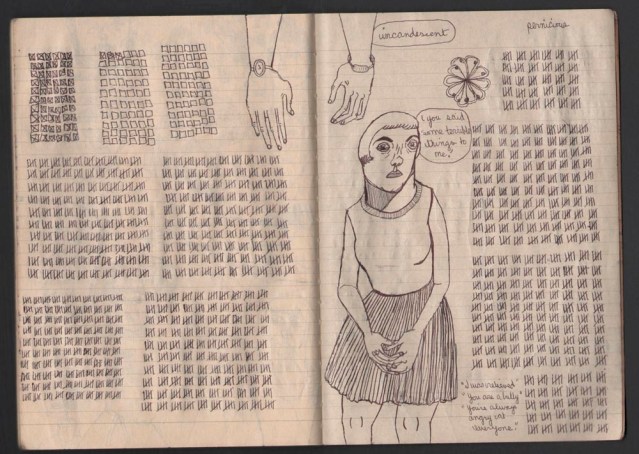 incandescent
pernicious
"you said
some terrible
things to
me."
"you are a bully"
"you're always
angry at
everyone."